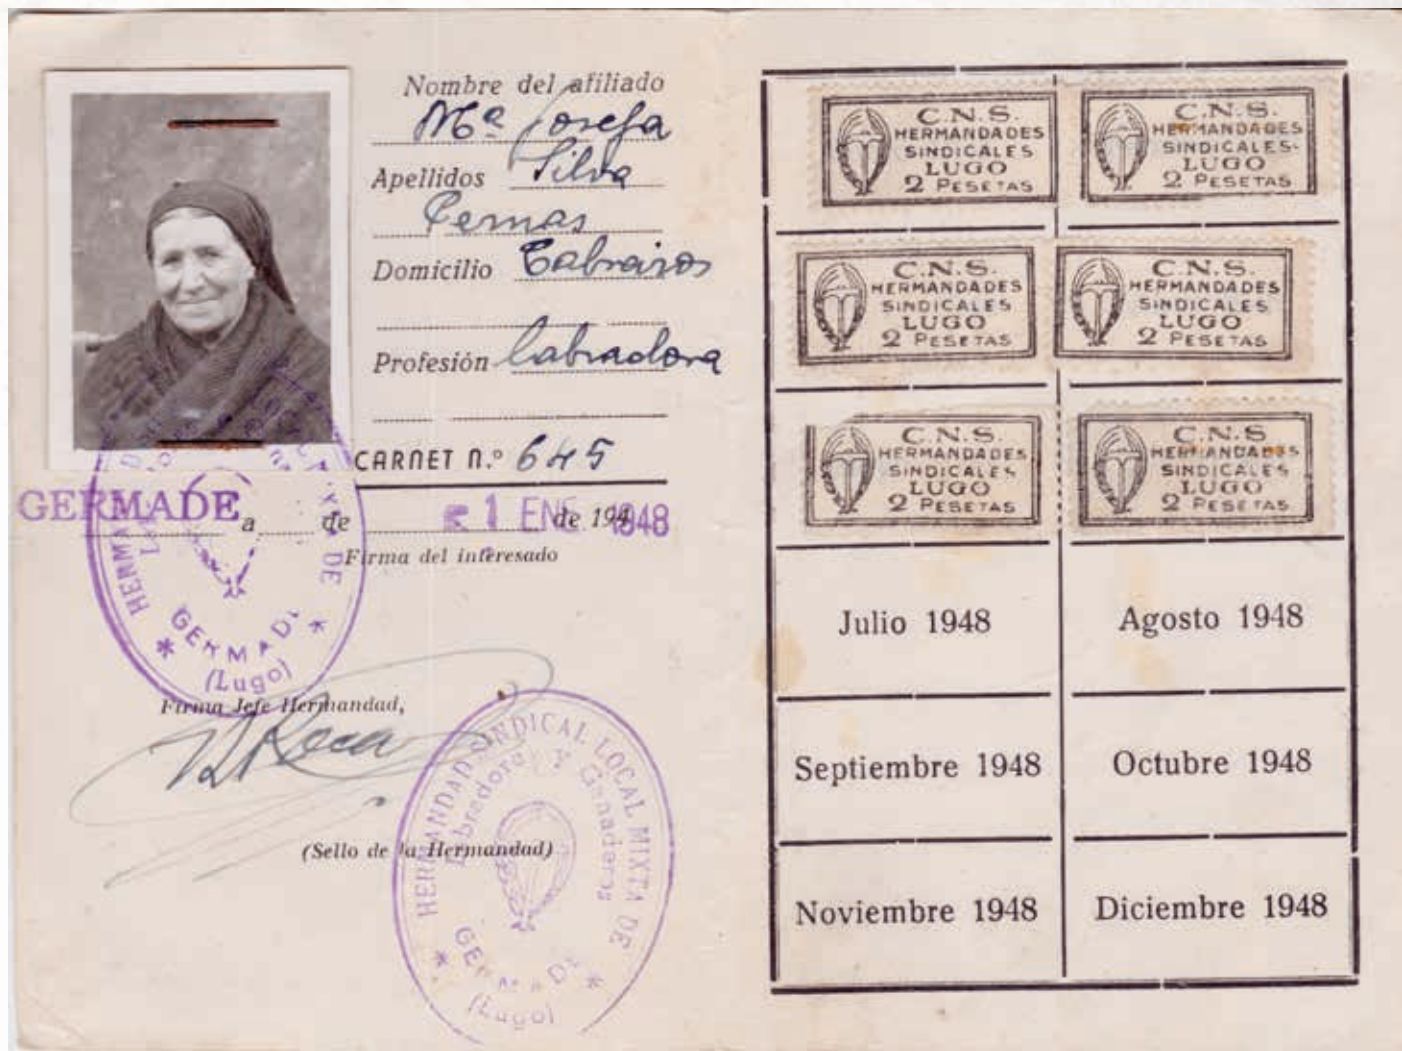 Nombre del afiliado
Mª Josefa
Apellidos Silva
Pernas
Domicilio Cabreiros
Profesión labradora
CARNET n.º 645
GERMADE a de 1 ENE 1948 de 194
Firma del interesado
HERMANDAD SINDICAL LOCAL MIXTA DE
Labradores y Ganaderos
GERMADE
(Lugo)
Firma Jefe Hermandad,
(Sello de la Hermandad)
HERMANDAD SINDICAL LOCAL MIXTA DE
Labradores y Ganaderos
GERMADE
(Lugo)
C.N.S.
HERMANDADES
SINDICALES
LUGO
2 PESETAS
C.N.S.
HERMANDADES
SINDICALES
LUGO
2 PESETAS
C.N.S.
HERMANDADES
SINDICALES
LUGO
2 PESETAS
C.N.S.
HERMANDADES
SINDICALES
LUGO
2 PESETAS
C.N.S.
HERMANDADES
SINDICALES
LUGO
2 PESETAS
C.N.S.
HERMANDADES
SINDICALES
LUGO
2 PESETAS
Julio 1948
Agosto 1948
Septiembre 1948
Octubre 1948
Noviembre 1948
Diciembre 1948